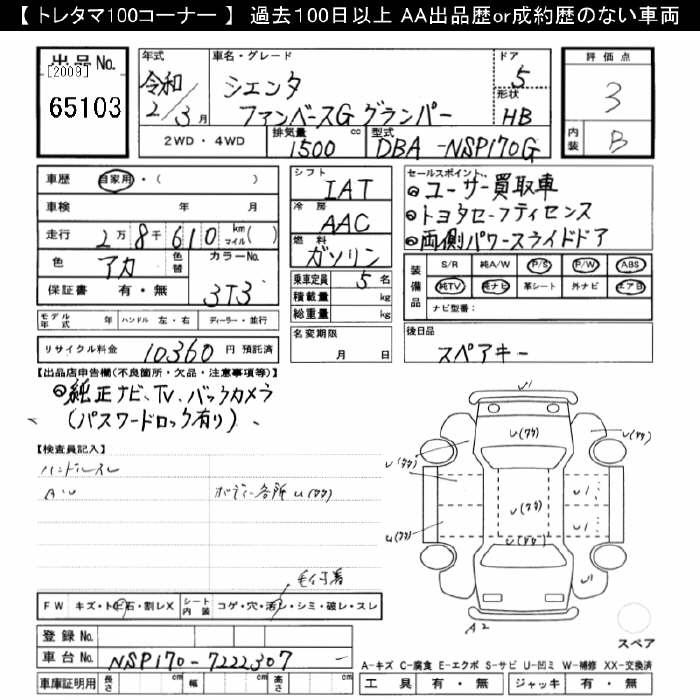 【 トレタマ100コーナー 】 過去100日以上 AA出品歴or成約歴のない車両
出品No. [2009] 65103
年式 令和 2/3月
車名・グレード シエンタ ファンベースG グランパー
ドア 5
形状 HB
評価点 3
内装 B
2WD・4WD 排気量 1500 cc 型式 DBA-NSP170G
車歴 自家用・( )
車検 年 月
走行 2万8千610 km マイル( )
色 アカ 色替 カラーNo. 3T3
保証書 有・無
モデル年式 年 ハンドル 左・右 ディーラー・並行
リサイクル料金 10360 円 預託済
シフト IAT
冷房 AAC
燃料 ガソリン
乗車定員 5 名
積載量 kg
総重量 kg
名変期限 月 日
セールスポイント
◎ユーザー買取車
◎トヨタセーフティセンス
◎両側パワースライドドア
装備品 S/R 純A/W P/S P/W ABS
純TV 純ナビ 革シート 外ナビ エア B
ナビ型番:
後日品 スペアキー
【出品店申告欄(不良箇所・欠品・注意事項等)】
◎純正ナビ、TV、バックカメラ
(パスワードロック有り)、
【検査員記入】
ハンドルスレ
A・U ボディー各所 U(ワワ)
毛付着
FW キズ・トビ石・割レX シート内装 コゲ・穴・汚レ・シミ・破レ・スレ
登録No.
車台No. NSP170-7222307
車庫証明用 長さ cm 幅 cm 高さ cm
U1
U(ワワ) U(ワワ)
U(ワワ) U1
U(ワワ)
U(ワワ) U1
U1
A2
スペア
A-キズ C-腐食 E-エクボ S-サビ U-凹ミ W-補修 XX-交換済
工具 有・無 ジャッキ 有・無